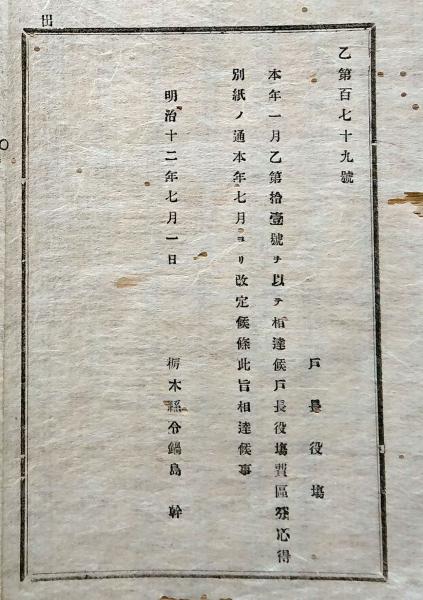 乙第百七十九號
戸長役塲
本年一月乙第拾壹號ヲ以テ相達候戸長役塲費區分心得
別紙ノ通本年七月ヨリ改定候條此旨相達候事
明治十二年七月一日
栃木縣令鍋島幹
出